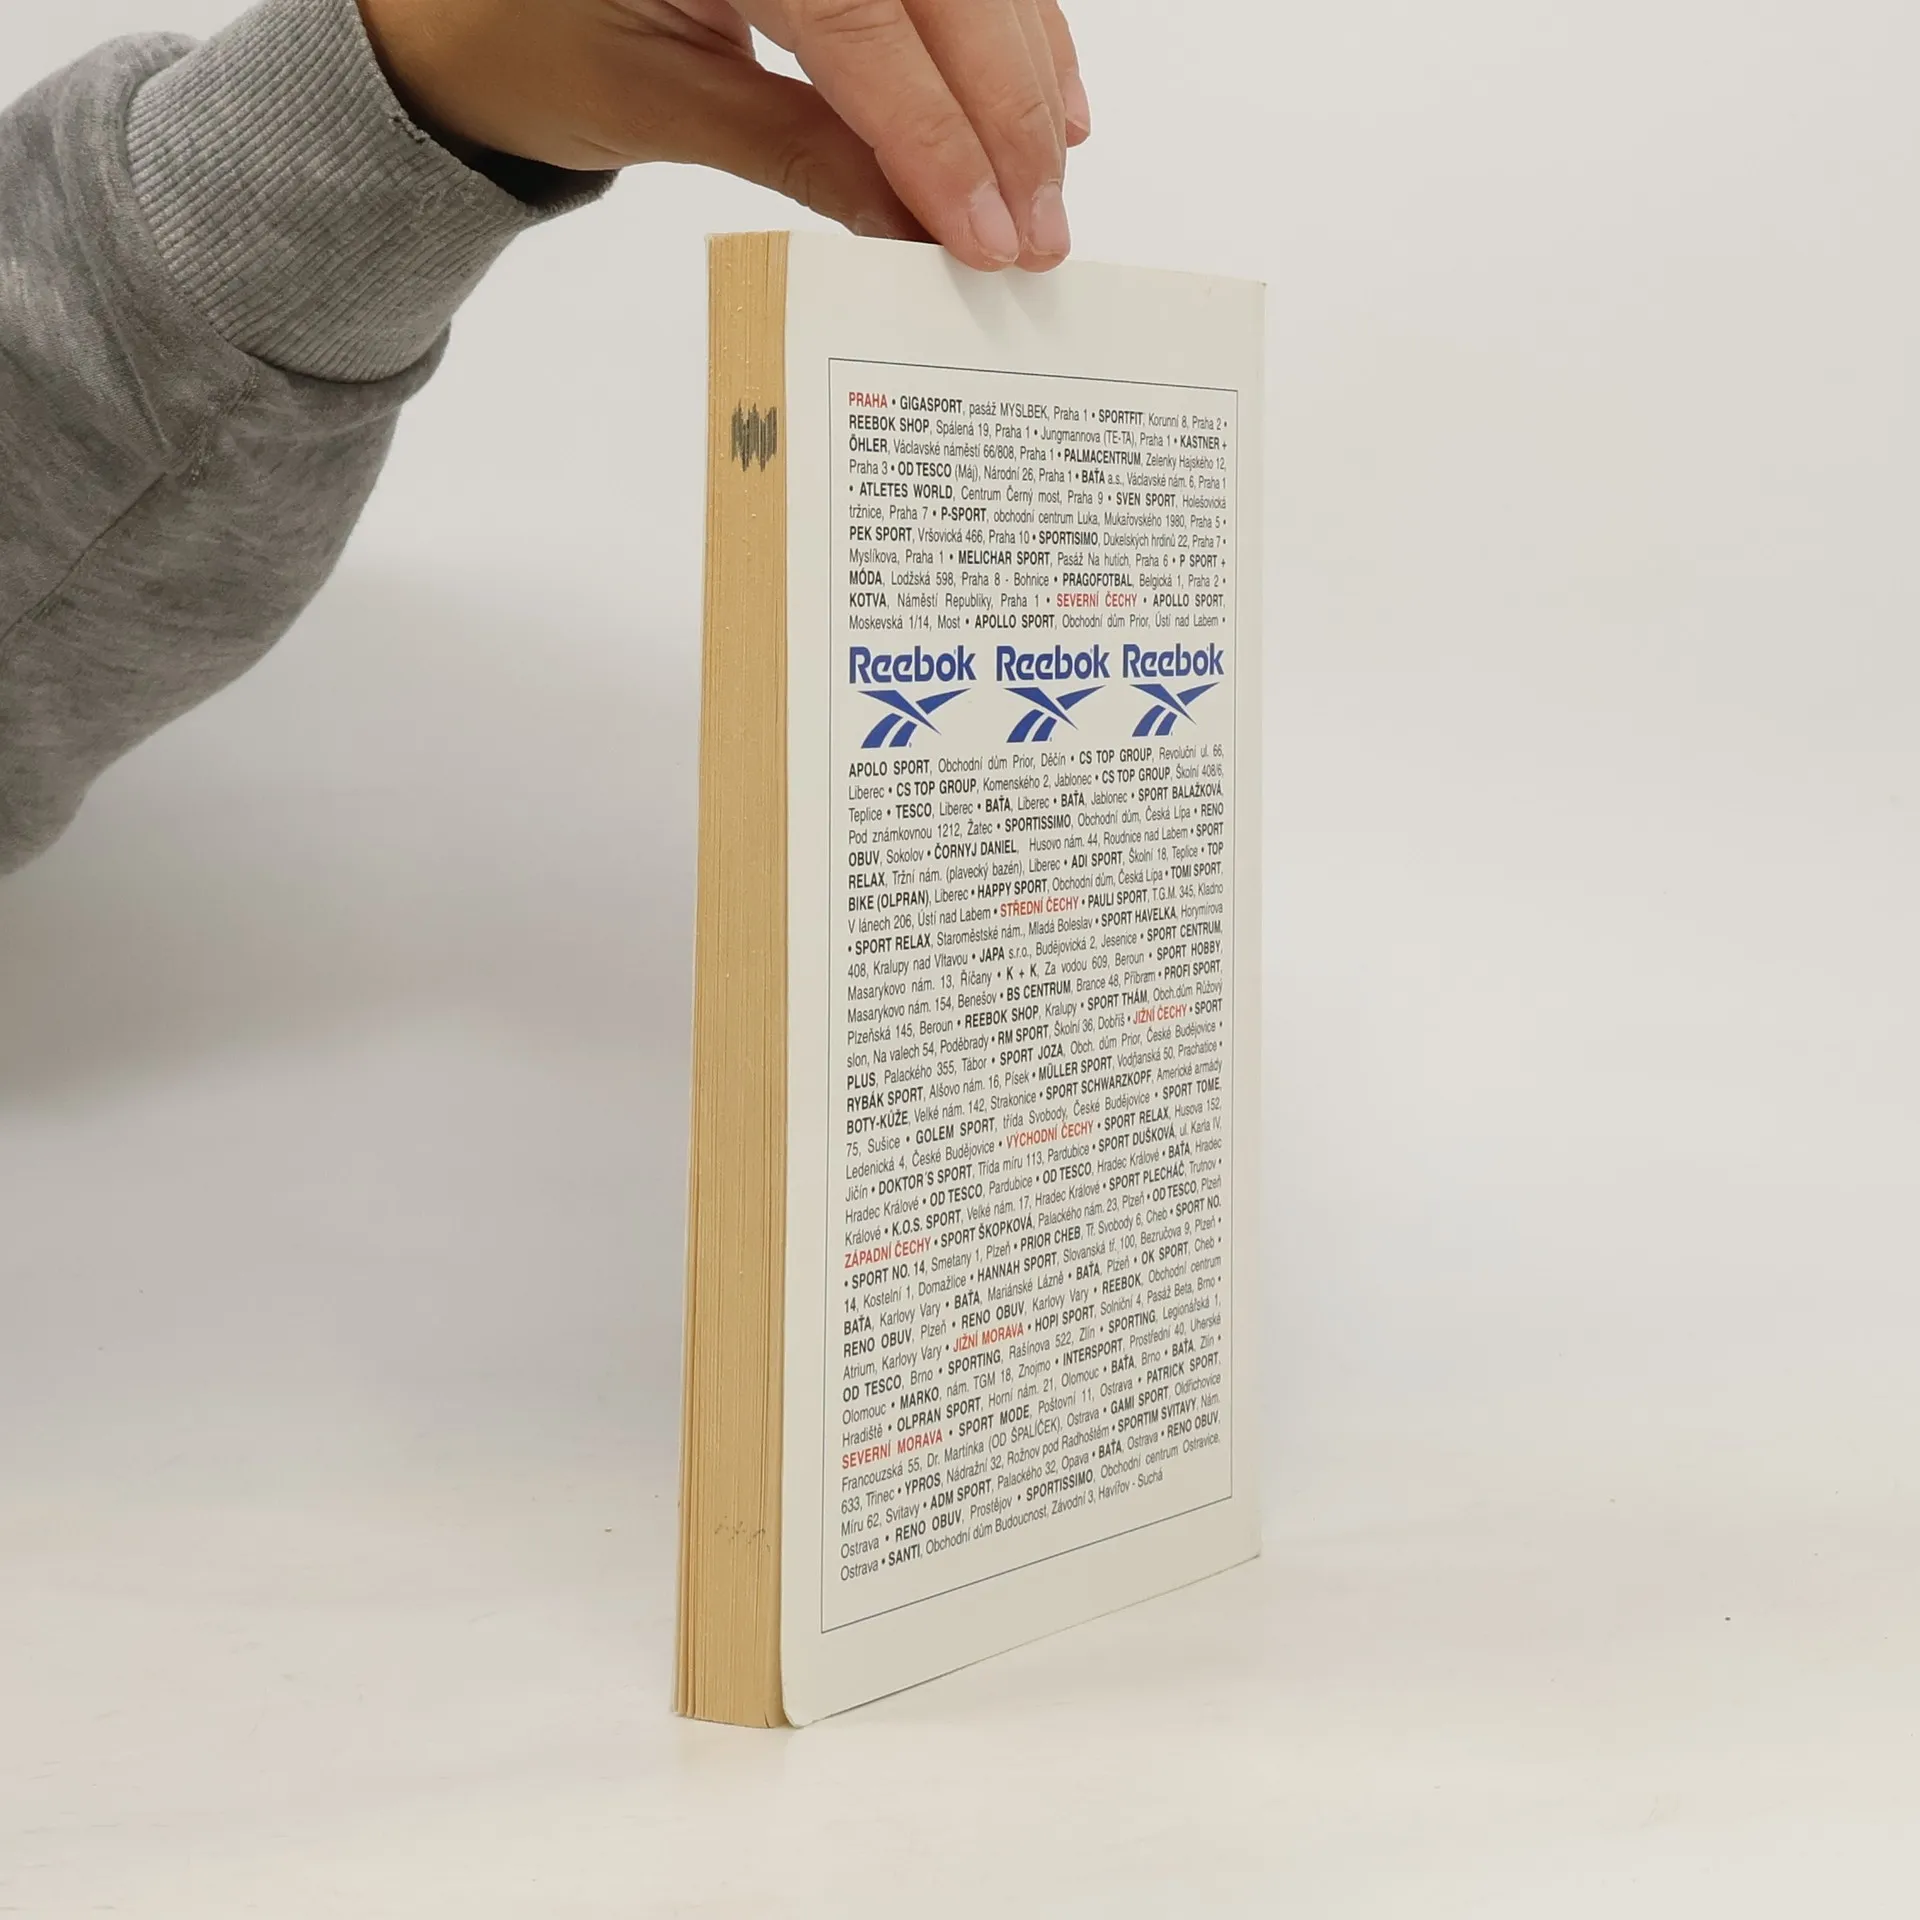 PRAHA • GIGASPORT, pasáž MYSLBEK, Praha 1 • SPORTFIT, Korunní 8, Praha 2 •
REEBOK SHOP, Spálená 19, Praha 1 • Jungmannova (TE-TA), Praha 1 • KASTNER +
ÖHLER, Václavské náměstí 66/808, Praha 1 • PALMACENTRUM, Zelenky Hajského 12,
Praha 3 • OD TESCO (Máj), Národní 26, Praha 1 • BAŤA a.s., Václavské nám. 6, Praha 1
• ATLETES WORLD, Centrum Černý most, Praha 9 • SVEN SPORT, Holešovická
tržnice, Praha 7 • P-SPORT, obchodní centrum Luka, Mukařovského 1980, Praha 5 •
PEK SPORT, Vršovická 466, Praha 10 • SPORTISIMO, Dukelských hrdinů 22, Praha 7 •
Myslíkova, Praha 1 • MELICHAR SPORT, Pasáž Na hutích, Praha 6 • P SPORT +
MÓDA, Lodžská 598, Praha 8 - Bohnice • PRAGOFOTBAL, Belgická 1, Praha 2 •
KOTVA, Náměstí Republiky, Praha 1 • SEVERNÍ ČECHY • APOLLO SPORT,
Moskevská 1/14, Most • APOLLO SPORT, Obchodní dům Prior, Ústí nad Labem •
Reebok Reebok Reebok
APOLO SPORT, Obchodní dům Prior, Děčín • CS TOP GROUP, Revoluční ul. 66,
Liberec • CS TOP GROUP, Komenského 2, Jablonec • CS TOP GROUP, Školní 408/6,
Teplice • TESCO, Liberec • BAŤA, Liberec • BAŤA, Jablonec • SPORT BALAŽKOVÁ,
Pod známkovnou 1212, Žatec • SPORTISSIMO, Obchodní dům, Česká Lípa • RENO
OBUV, Sokolov • ČORNYJ DANIEL, Husovo nám. 44, Roudnice nad Labem • SPORT
RELAX, Tržní nám. (plavecký bazén), Liberec • ADI SPORT, Školní 18, Teplice • TOP
BIKE (OLPRAN), Liberec • HAPPY SPORT, Obchodní dům, Česká Lípa • TOMI SPORT,
V lánech 206, Ústí nad Labem • STŘEDNÍ ČECHY • PAULI SPORT, T.G.M. 345, Kladno
• SPORT RELAX, Staroměstské nám., Mladá Boleslav • SPORT HAVELKA, Horymírova
408, Kralupy nad Vltavou • JAPA s.r.o., Budějovická 2, Jesenice • SPORT CENTRUM,
Masarykovo nám. 13, Říčany • K + K, Za vodou 609, Beroun • SPORT HOBBY,
Masarykovo nám. 154, Benešov • BS CENTRUM, Brance 48, Příbram • PROFI SPORT,
Plzeňská 145, Beroun • REEBOK SHOP, Kralupy • SPORT THÁM, Obch.dům Růžový
slon, Na valech 54, Poděbrady • RM SPORT, Školní 36, Dobříš • JIŽNÍ ČECHY • SPORT
PLUS, Palackého 355, Tábor • SPORT JOZA, Obch. dům Prior, České Budějovice •
RYBÁK SPORT, Alšovo nám. 16, Písek • MÜLLER SPORT, Vodňanská 50, Prachatice •
BOTY-KŮŽE, Velké nám. 142, Strakonice • SPORT SCHWARZKOPF, Americké armády
75, Sušice • GOLEM SPORT, třída Svobody, České Budějovice • SPORT TOME,
Ledenická 4, České Budějovice • VÝCHODNÍ ČECHY • SPORT RELAX, Husova 152,
Jičín • DOKTOR´S SPORT, Třída míru 113, Pardubice • SPORT DUŠKOVÁ, ul. Karla IV,
Hradec Králové • OD TESCO, Pardubice • OD TESCO, Hradec Králové • BAŤA, Hradec
Králové • K.O.S. SPORT, Velké nám. 17, Hradec Králové • SPORT PLECHÁČ, Trutnov •
ZÁPADNÍ ČECHY • SPORT ŠKOPKOVÁ, Palackého nám. 23, Plzeň • OD TESCO, Plzeň
• SPORT NO. 14, Smetany 1, Plzeň • PRIOR CHEB, Tř. Svobody 6, Cheb • SPORT NO.
14, Kostelní 1, Domažlice • HANNAH SPORT, Slovanská tř. 100, Bezručova 9, Plzeň •
BAŤA, Karlovy Vary • BAŤA, Mariánské Lázně • BAŤA, Plzeň • OK SPORT, Cheb •
RENO OBUV, Plzeň • RENO OBUV, Karlovy Vary • REEBOK, Obchodní centrum
Atrium, Karlovy Vary • JIŽNÍ MORAVA • HOPI SPORT, Solniční 4, Pasáž Beta, Brno •
OD TESCO, Brno • SPORTING, Rašínova 522, Zlín • SPORTING, Legionářská 1,
Olomouc • MARKO, nám. TGM 18, Znojmo • INTERSPORT, Prostřední 40, Uherské
Hradiště • OLPRAN SPORT, Horní nám. 21, Olomouc • BAŤA, Brno • BAŤA, Zlín •
SEVERNÍ MORAVA • SPORT MODE, Poštovní 11, Ostrava • PATRICK SPORT,
Francouzská 55, Dr. Martínka (OD ŠPALÍČEK), Ostrava • GAMI SPORT, Oldřichovice
633, Třinec • YPROS, Nádražní 32, Rožnov pod Radhoštěm • SPORTIM SVITAVY, Nám.
Míru 62, Svitavy • ADM SPORT, Palackého 32, Opava • BAŤA, Ostrava • RENO OBUV,
Ostrava • RENO OBUV, Prostějov • SPORTISSIMO, Obchodní centrum Ostravice,
Ostrava • SANTI, Obchodní dům Budoucnost, Závodní 3, Havířov - Suchá